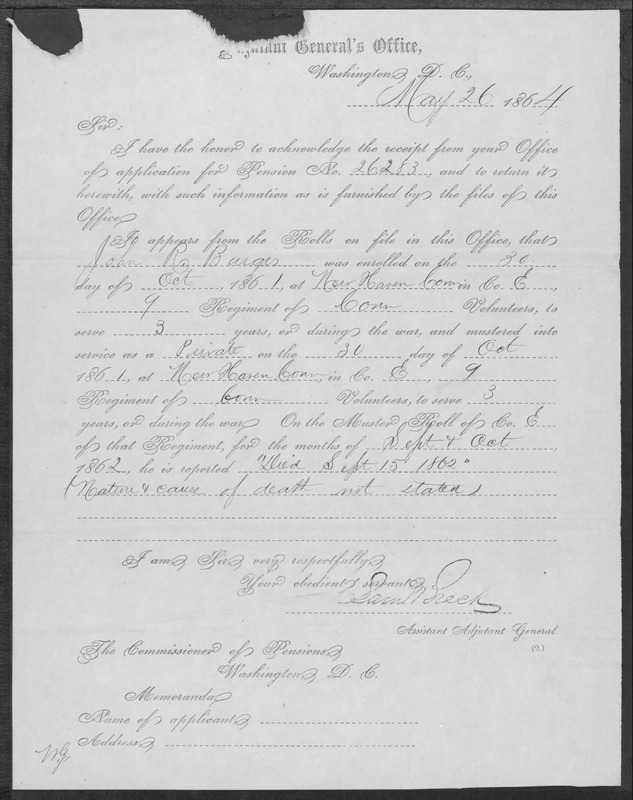 Adjutant General's Office,
Washington, D. C.,
May 26 1864
Sir:
I have the honor to acknowledge the receipt from your Office
of application for Pension No. 26283, and to return it
herewith, with such information as is furnished by the files of this
Office.
It appears from the Rolls on file in this Office, that
John R. Burgis was enrolled on the 30
day of Oct, 1861, at New Haven Conn in Co. E,
9 Regiment of Conn Volunteers, to
serve 3 years, or during the war, and mustered into
service as a Private on the 30 day of Oct
1861, at New Haven Conn, in Co. E, 9
Regiment of Conn Volunteers, to serve 3
years, or during the war. On the Muster Roll of Co. E
of that Regiment, for the months of Sept & Oct
1862, he is reported "Died Sept 15 1862"
(Nature & cause of death not stated)
I am, Sir, very respectfully,
Your obedient servant,
Saml Breck
Assistant Adjutant General.
(2.)
The Commissioner of Pensions,
Washington, D. C.
Memoranda.
Name of applicant,
Address,